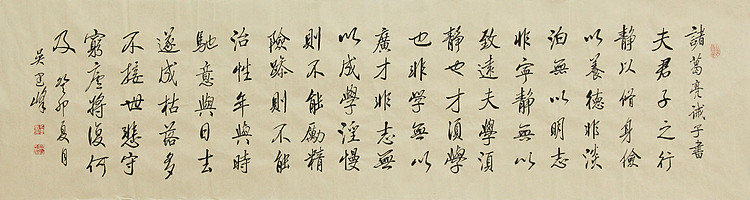 諸葛亮誡子書
夫君子之行
靜以脩身儉
以養德非淡
泊無以明志
非寧靜無以
致遠夫學須
靜也才須學
也非学無以
廣才非志無
以成學淫慢
則不能勵精
險躁則不能
治性年與時
馳意與日去
遂成枯落多
不接世悲守
窮廬將復何
及 癸卯夏月